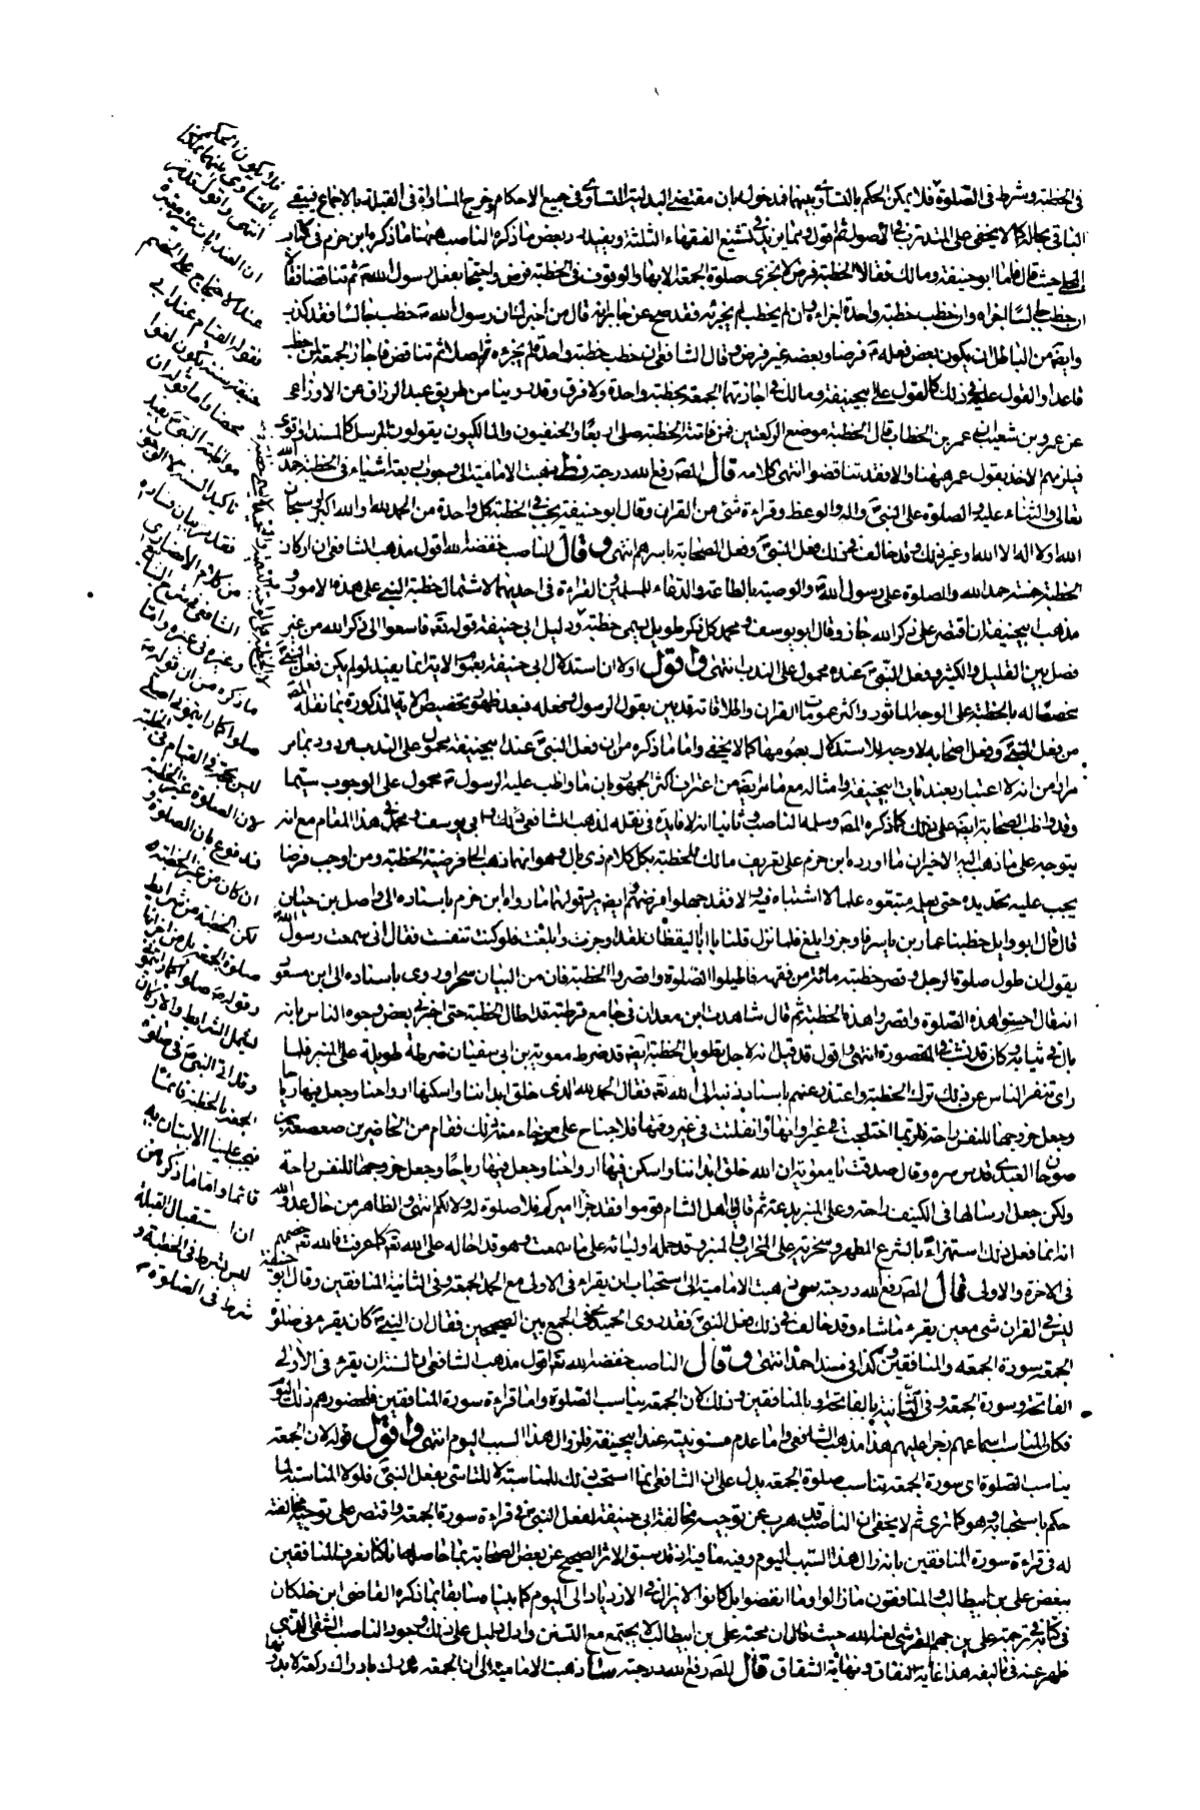 في الخطبة وشرط في الصلوة فلا يمكن الحكم بالتساوي بينهما فمدخول بان مقتضى البدلية التساوي في جميع الاحكام وخرج المساواة في القبلة بالاجماع فيبقى
الباقي بحاله كما لا يخفى على المتدرب في الاصول ثم اقول ومما يزيد في تشنيع الفقهاء الثلثة ويفيد بعض ما ذكره الناصب ههنا ما ذكره ابن حزم في كتاب
المحلى حيث قال فاما ابو حنيفة ومالك فقالا الخطبة فرض لا تجزى صلوة الجمعة الا بها والوقوف في الخطبة فرض واحتجا بفعل رسول الله ثم تناقضا فقالا
ان خطب جالسا اجزاه وان خطب خطبة واحدة اجزاه وان لم يخطب لم يجزه فقد صح عن جابر انه قال من اخبرك ان رسول الله خطب جالسا فقد كذب
وايضا من الباطل ان يكون بعض فعله فرضا وبعضه غير فرض وقال الشافعي ان خطب خطبة واحدة لم يجزه ثم تناقض فاجاز الجمعة لمن خطب
قاعدا والقول عليه في ذلك كالقول على ابي حنيفة ومالك في اجازتهما الجمعة بخطبة واحدة ولا فرق وقد روينا من طريق عبد الرزاق عن الاوزاعي
عن عمرو بن شعيب ان عمر بن الخطاب قال الخطبة موضع الركعتين فمن فاتته الخطبة صلى اربعا والحنفيون والمالكيون يقولون المرسل كالمسند واقوى
فيلزمهم الاخذ بقول عمر ههنا والا فقد تناقضوا انتهى كلامه قال المص رفع الله درجته ذهبت الامامية الى وجوب اربعة اشياء في الخطبة حمد الله
تعالى والثناء عليه والصلوة على النبي واله والوعظ وقراءة شئ من القران وقال ابو حنيفة يجزي في الخطبة كل واحدة من الحمد لله والله اكبر وسبحان
الله ولا اله الا الله وغير ذلك وقد خالف في ذلك فعل النبي وفعل الصحابة باسرهم انتهى وقال الناصب خفضه الله اقول مذهب الشافعي ان اركان
الخطبة خمسة حمد الله والصلوة على رسول الله والوصية بالطاعة والدعاء للمسلمين والقراءة في احديهما لاشتمال خطبة النبي على هذه الامور و
مذهب ابي حنيفة ان اقتصر على ذكر الله جاز وقال ابو يوسف ومحمد كل ذكر طويل يسمى خطبة ودليل ابي حنيفة قوله تعالى فاسعوا الى ذكر الله من غير
فصل بين القليل والكثير وفعل النبي عنده محمول على الندب انتهى واقول اولا ان استدلال ابي حنيفة بعموم الاية انما يفيد لو لم يكن فعل النبي
مخصصا له بالخطبة على الوجه الماثور واكثر عمومات القران واطلاقاته قد بين بقول الرسول وفعله فبعد ظهور تخصيص الاية المذكورة بما نقله المص
من فعل النبي وفعل اصحابه لا وجه للاستدلال بعمومها كما لا يخفى واما ما ذكره من ان فعل النبي عند ابي حنيفة محمول على الندب مردود بما مر
مرارا من انه لا اعتبار بعنديات ابي حنيفة وامثاله مع ما سبق من اعتراف اكثر الجمهور بان ما واظب عليه الرسول محمول على الوجوب سيما
وقد واظب الصحابة ايضا على ذلك كما ذكره المص وسلمه الناصب وثانيا انه لا فايدة في نقله لمذهب الشافعي وابي يوسف ومحمد في هذا المقام مع انه
يتوجه على ما ذهب اليه الاخيران ما اورده ابن حزم على تعريف مالك للخطبة بكل كلام ذي بال وهو انهما ذهبا الى فرضية الخطبة ومن اوجب فرضا
يجب عليه تحديده حتى يعلم متبعوه علما لا اشتباه فيه والا فقد جهلوا فرضهم
قال قال ابو وايل خطبنا عمار بن ياسر فاوجز وابلغ فلما نزل قلنا يا ابا اليقظان لقد اوجزت وابلغت فلو كنت تنفست فقال اني سمعت رسول الله
يقول ان طول صلوة الرجل وقصر خطبته مائنة من فقهه فاطيلوا الصلوة واقصروا الخطبة فان من البيان سحرا وروى باسناده الى ابن مسعود
انه قال احسنوا هذه الصلوة واقصروا هذه الخطبة ثم قال شاهدت ابن معدان في جامع قرطبة قد اطال الخطبة حتى اخبرني بعض وجوه الناس بانه
بال في ثيابه وكان قد نشب في المقصورة انتهى واقول قد قيل انه لاجل تطويل الخطبة ايضا قد ضرط معوية بن ابي سفيان ضرطة طويلة على المنبر فلما
راى تنفر الناس عن ذلك ترك الخطبة واعتذر عنهم باسناد ذنبه الى الله تعالى فقال الحمد لله الذي خلق ابداننا واسكنها ارواحنا وجعل فيها رياحا
وجعل خروجها للنفس راحة فلربما اختلجت في غير اوانها وانفلتت في غير وقتها فلا جناح على من جاء منه ذلك فقام من الحاضرين صعصعة بن
صوحان العبدي قدس سره وقال صدقت يا معوية ان الله خلق ابداننا واسكن فيها ارواحنا وجعل فيها رياحا وجعل خروجها للنفس راحة
ولكن جعل ارسالها في الكنيف راحة وعلى المنبر بدعة ثم قال يا اهل الشام قوموا فقد خرا اميركم فلا صلوة له ولا لكم انتهى والظاهر من حال عدو الله
انه انما فعل ذلك استهزاء بالشرع المطهر وسخرية على المحراب والمنبر وقد حمله اوليائه على ما سمعت وهو قد احاله على الله تعالى كما عرفت فالله تعالى خصمه
في الاخرة والاولى قال المص رفع الله درجته ذهبت الامامية الى استحباب ان يقراء في الاولى مع الحمد الجمعة وفي الثانية المنافقين وقال ابو حنيفة
ليس في القران شئ معين يقرء ما شاء وقد خالف في ذلك فعل النبي فقد روى الحميدي في الجمع بين الصحيحين فقال ان النبي كان يقرء في صلوة
الجمعة سورة الجمعه والمنافقين وكذا في مسند احمد انتهى وقال الناصب خفضه الله تعالى اقول مذهب الشافعي ان السنة ان يقرء في الاولى
الفاتحة وسورة الجمعة وفي الثانية بالفاتحة وبالمنافقين وذلك لان الجمعة يناسب الصلوة واما قراءة سورة المنافقين فلحضورهم ذلك اليوم
فكان المناسب اسماعهم زجرا عليهم هذا مذهب الشافعي واما عدم مسنونيته عند ابي حنيفة فلزوال هذا السبب اليوم انتهى واقول قوله لان الجمعة
يناسب الصلوة اي سورة الجمعة يناسب صلوة الجمعة يدل على ان الشافعي انما استحب ذلك للمناسبة لا للتاسي بفعل النبي فلولا المناسبة لما
حكم باستحبابه وهو كما ترى ثم لا يخفى ان الناصب قد هرب عن توجيه مخالفة ابي حنيفة لفعل النبي في قراءة سورة الجمعة واقتصر على توجيه مخالفته
له في قراءة سورة المنافقين بانه زال هذا السبب اليوم وفيه ما فيه اذ قد سبق الاثر الصحيح عن بعض الصحابة بما حاصله انا كنا نعرف المنافقين
ببغض علي بن ابيطالب والمنافقون ما زالوا وما انقضوا بل كانوا لا يزال في الازدياد الى اليوم كما بيناه سابقا بما ذكره القاضي ابن خلكان
في كتابه في ترجمة علي بن جهم القرشي لعنه الله حيث قال ان محبة علي بن ابيطالب لا يجتمع مع التسنن وادل دليل على ذلك وجود الناصب الشقي الذي
ظهر عنه في تاليفه هذا غاية النفاق ونهاية الشقاق قال المص رفع الله درجته ذهبت الامامية الى ان الجمعة تدرك بادراك ركعة لا بدونها
فلا يكون الحكم
بالتساوي بينهما ممكنا
انتهى واقول قد مر
عندنا لا احتجاج على الخصم
فقوله القيام عند ابي
حنيفة سنة يكون لغوا
محضا واما قوله ان
مواظبة النبي يفيد
تاكيد السنة لا الوجوب
فقد مر بيان فساده
من كلام الانصاري
الشافعي في شرح المنهاج
وغيره في غيره واما
ما ذكره من ان قوله
صلوا كما رايتموني اصلي
ليس بحجة في القيام في الخطبة
لان الصلوة غير الخطبة
فمدفوع بان الصلوة و
ان كان من غير الخطبة
لكن الخطبة من شرايط
صلوة الجمعة بل من اجزائها
وقوله صلوا كما رايتموني
يشمل الشرايط والاركان
وقد اتى النبي في صلوة
الجمعة بالخطبة قائما
فيجب علينا الاتيان به
قائما واما ما ذكره من
ان استقبال القبلة
ليس بشرط في الخطبة و
شرط في الصلوة